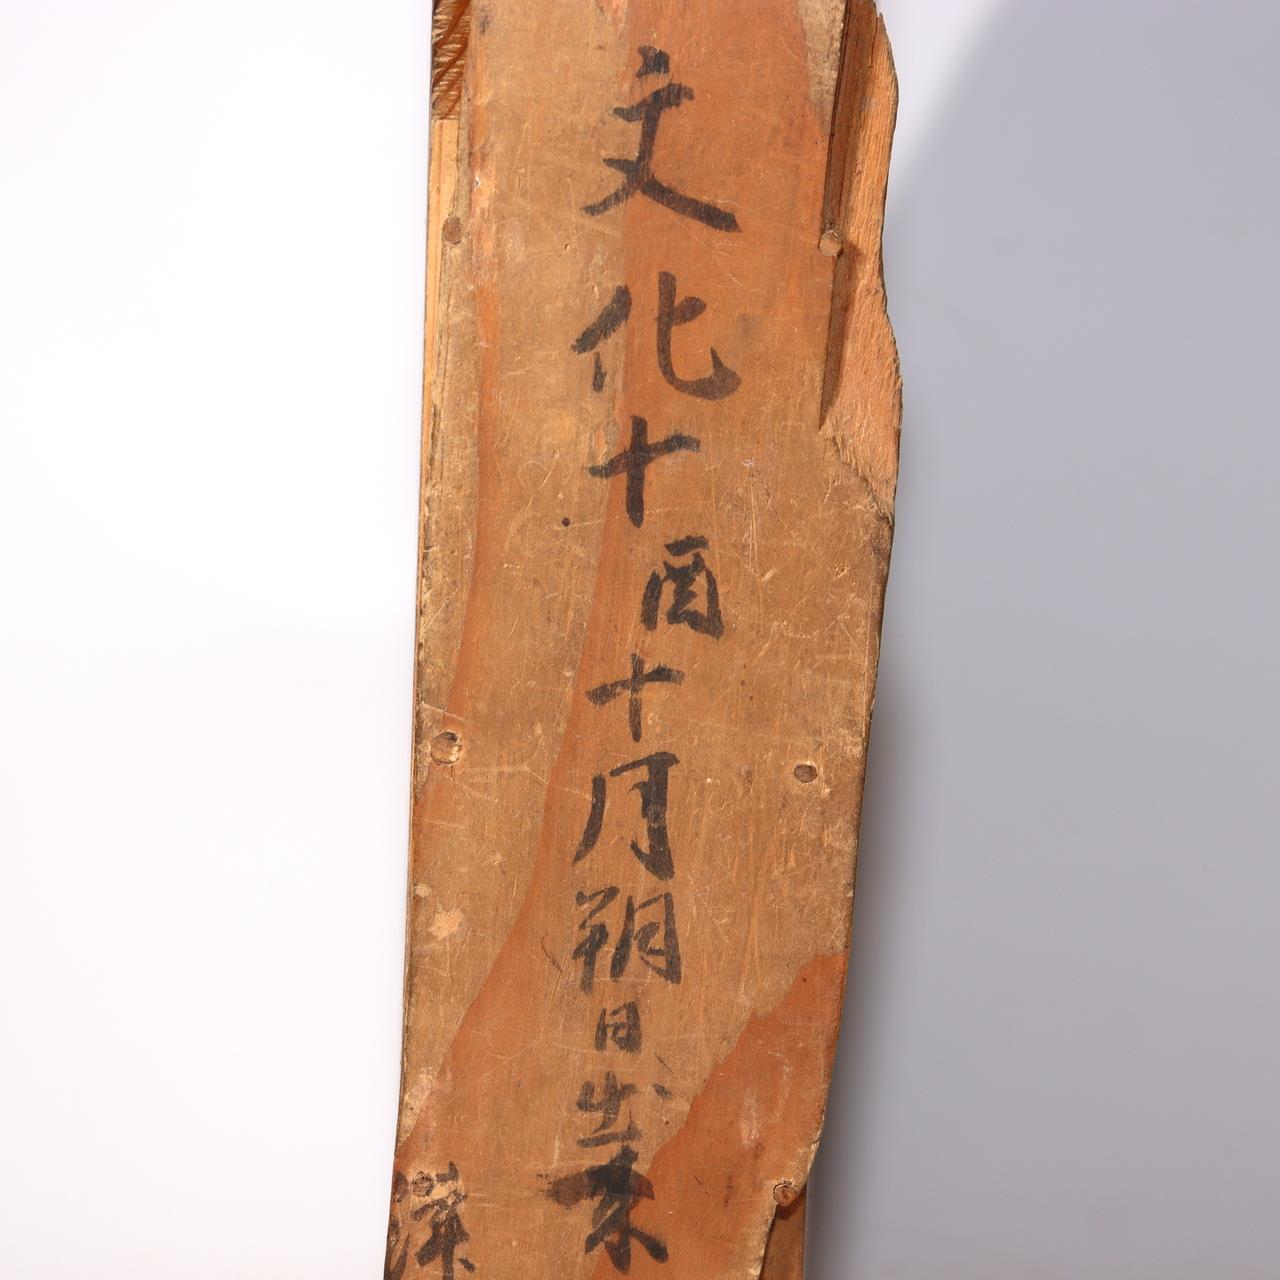 文化十酉十月朔日出来
深